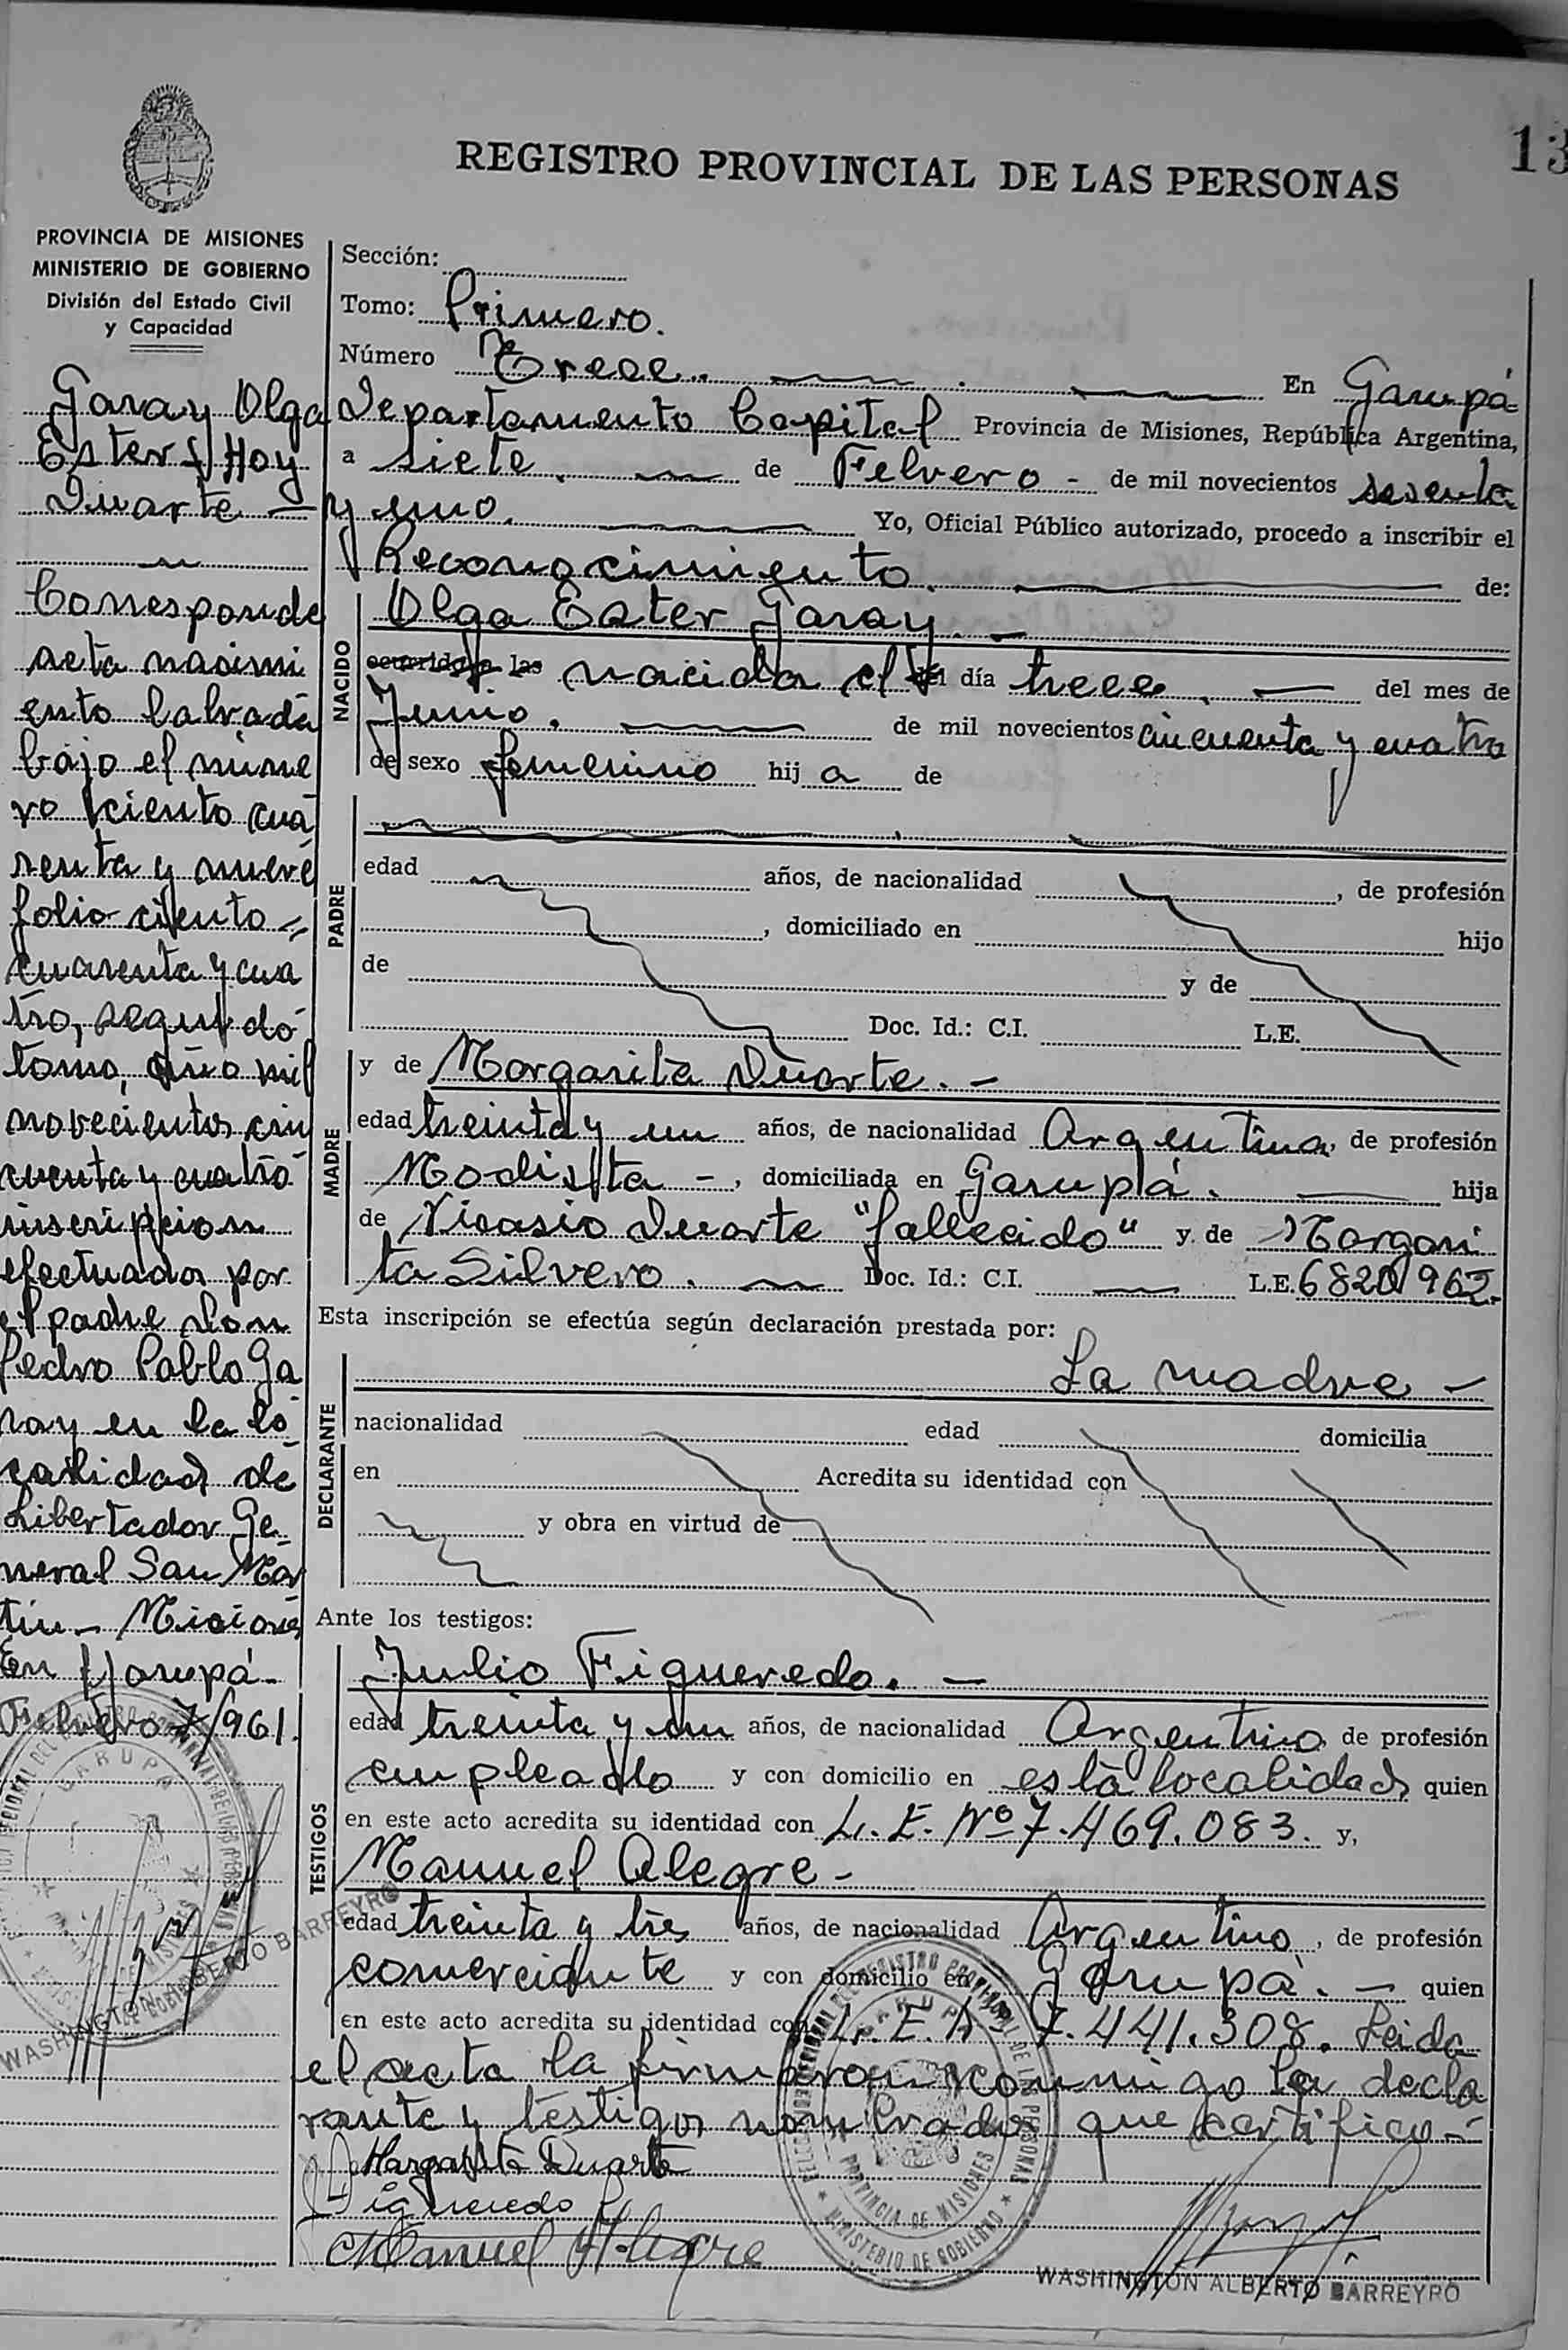 13
REGISTRO PROVINCIAL DE LAS PERSONAS
PROVINCIA DE MISIONES
MINISTERIO DE GOBIERNO
División del Estado Civil
y Capacidad
Garay Olga
Ester Hoy
Duarte -
Corresponde
acta nacimi
ento labrada
bajo el núme
ro ciento cua
renta y nueve
folio ciento
cuarenta y cua
tro, segundo
tomo, año mil
novecientos cin
cuenta y cuatro
inscripcion
efectuada por
el padre don
Pedro Pablo Ga
ray en la lo
calidad de
Libertador Ge
neral San Mar
tin - Misiones
En Garupá
Febrero 7/961.
WASHINGTON ALBERTO BARREYRO
Sección:
Tomo: Primero.
Número Trece. En Garupá
Departamento Capital Provincia de Misiones, República Argentina,
a siete de Febrero - de mil novecientos sesenta
y uno. Yo, Oficial Público autorizado, procedo a inscribir el
Reconocimiento. de:
NACIDO
Olga Ester Garay. -
nacida el día trece. del mes de
Junio. de mil novecientos cincuenta y cuatro
de sexo femenino hija de
PADRE
edad años, de nacionalidad , de profesión
, domiciliado en hijo
de y de
Doc. Id.: C.I. L.E.
MADRE
y de Margarita Duarte. -
edad treinta y un años, de nacionalidad Argentina, de profesión
Modista -, domiciliada en Garupá. hija
de Nicasio Duarte "fallecido" y de Margari
ta Silvero. Doc. Id.: C.I. L.E. 6820962.
Esta inscripción se efectúa según declaración prestada por:
DECLARANTE
La madre -
nacionalidad edad domicilia
en Acredita su identidad con
y obra en virtud de
Ante los testigos:
TESTIGOS
Julio Figueredo. -
edad treinta y un años, de nacionalidad Argentino de profesión
empleado y con domicilio en esta localidad quien
en este acto acredita su identidad con L.E. Nº 7.469.083. y,
Manuel Alegre -
edad treinta y tres años, de nacionalidad Argentino, de profesión
comerciante y con domicilio en Garupá. - quien
en este acto acredita su identidad con L.E. Nº 7.441.308. Leida
el acta la firmaron conmigo la decla
rante y testigos nombrados que certifico -
Margarita Duarte
Figueredo
Manuel Alegre
GARUPA
PROVINCIA DE MISIONES
MINISTERIO DE GOBIERNO
WASHINGTON ALBERTO BARREYRO